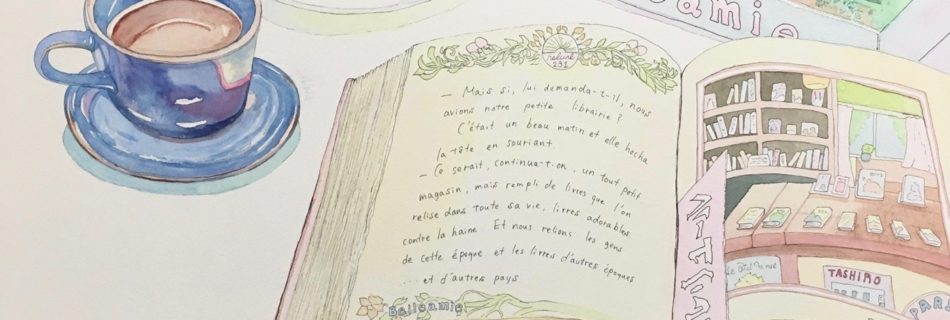 amie
relure
231
— Mais si, lui demanda-t-il, nous
avions notre petite librairie ?
C'était un beau matin et elle hocha
la tête en souriant
— Ce serait, continua-t-on, un tout petit
magasin, mais rempli de livres que l'on
relise dans toute sa vie, livres adorables
contre la haine Et nous relions les gens
de cette époque et les livres d'autres époques
... et d'autres pays
Bellcamie
TASHIRO